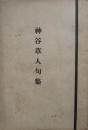 神谷草人句集